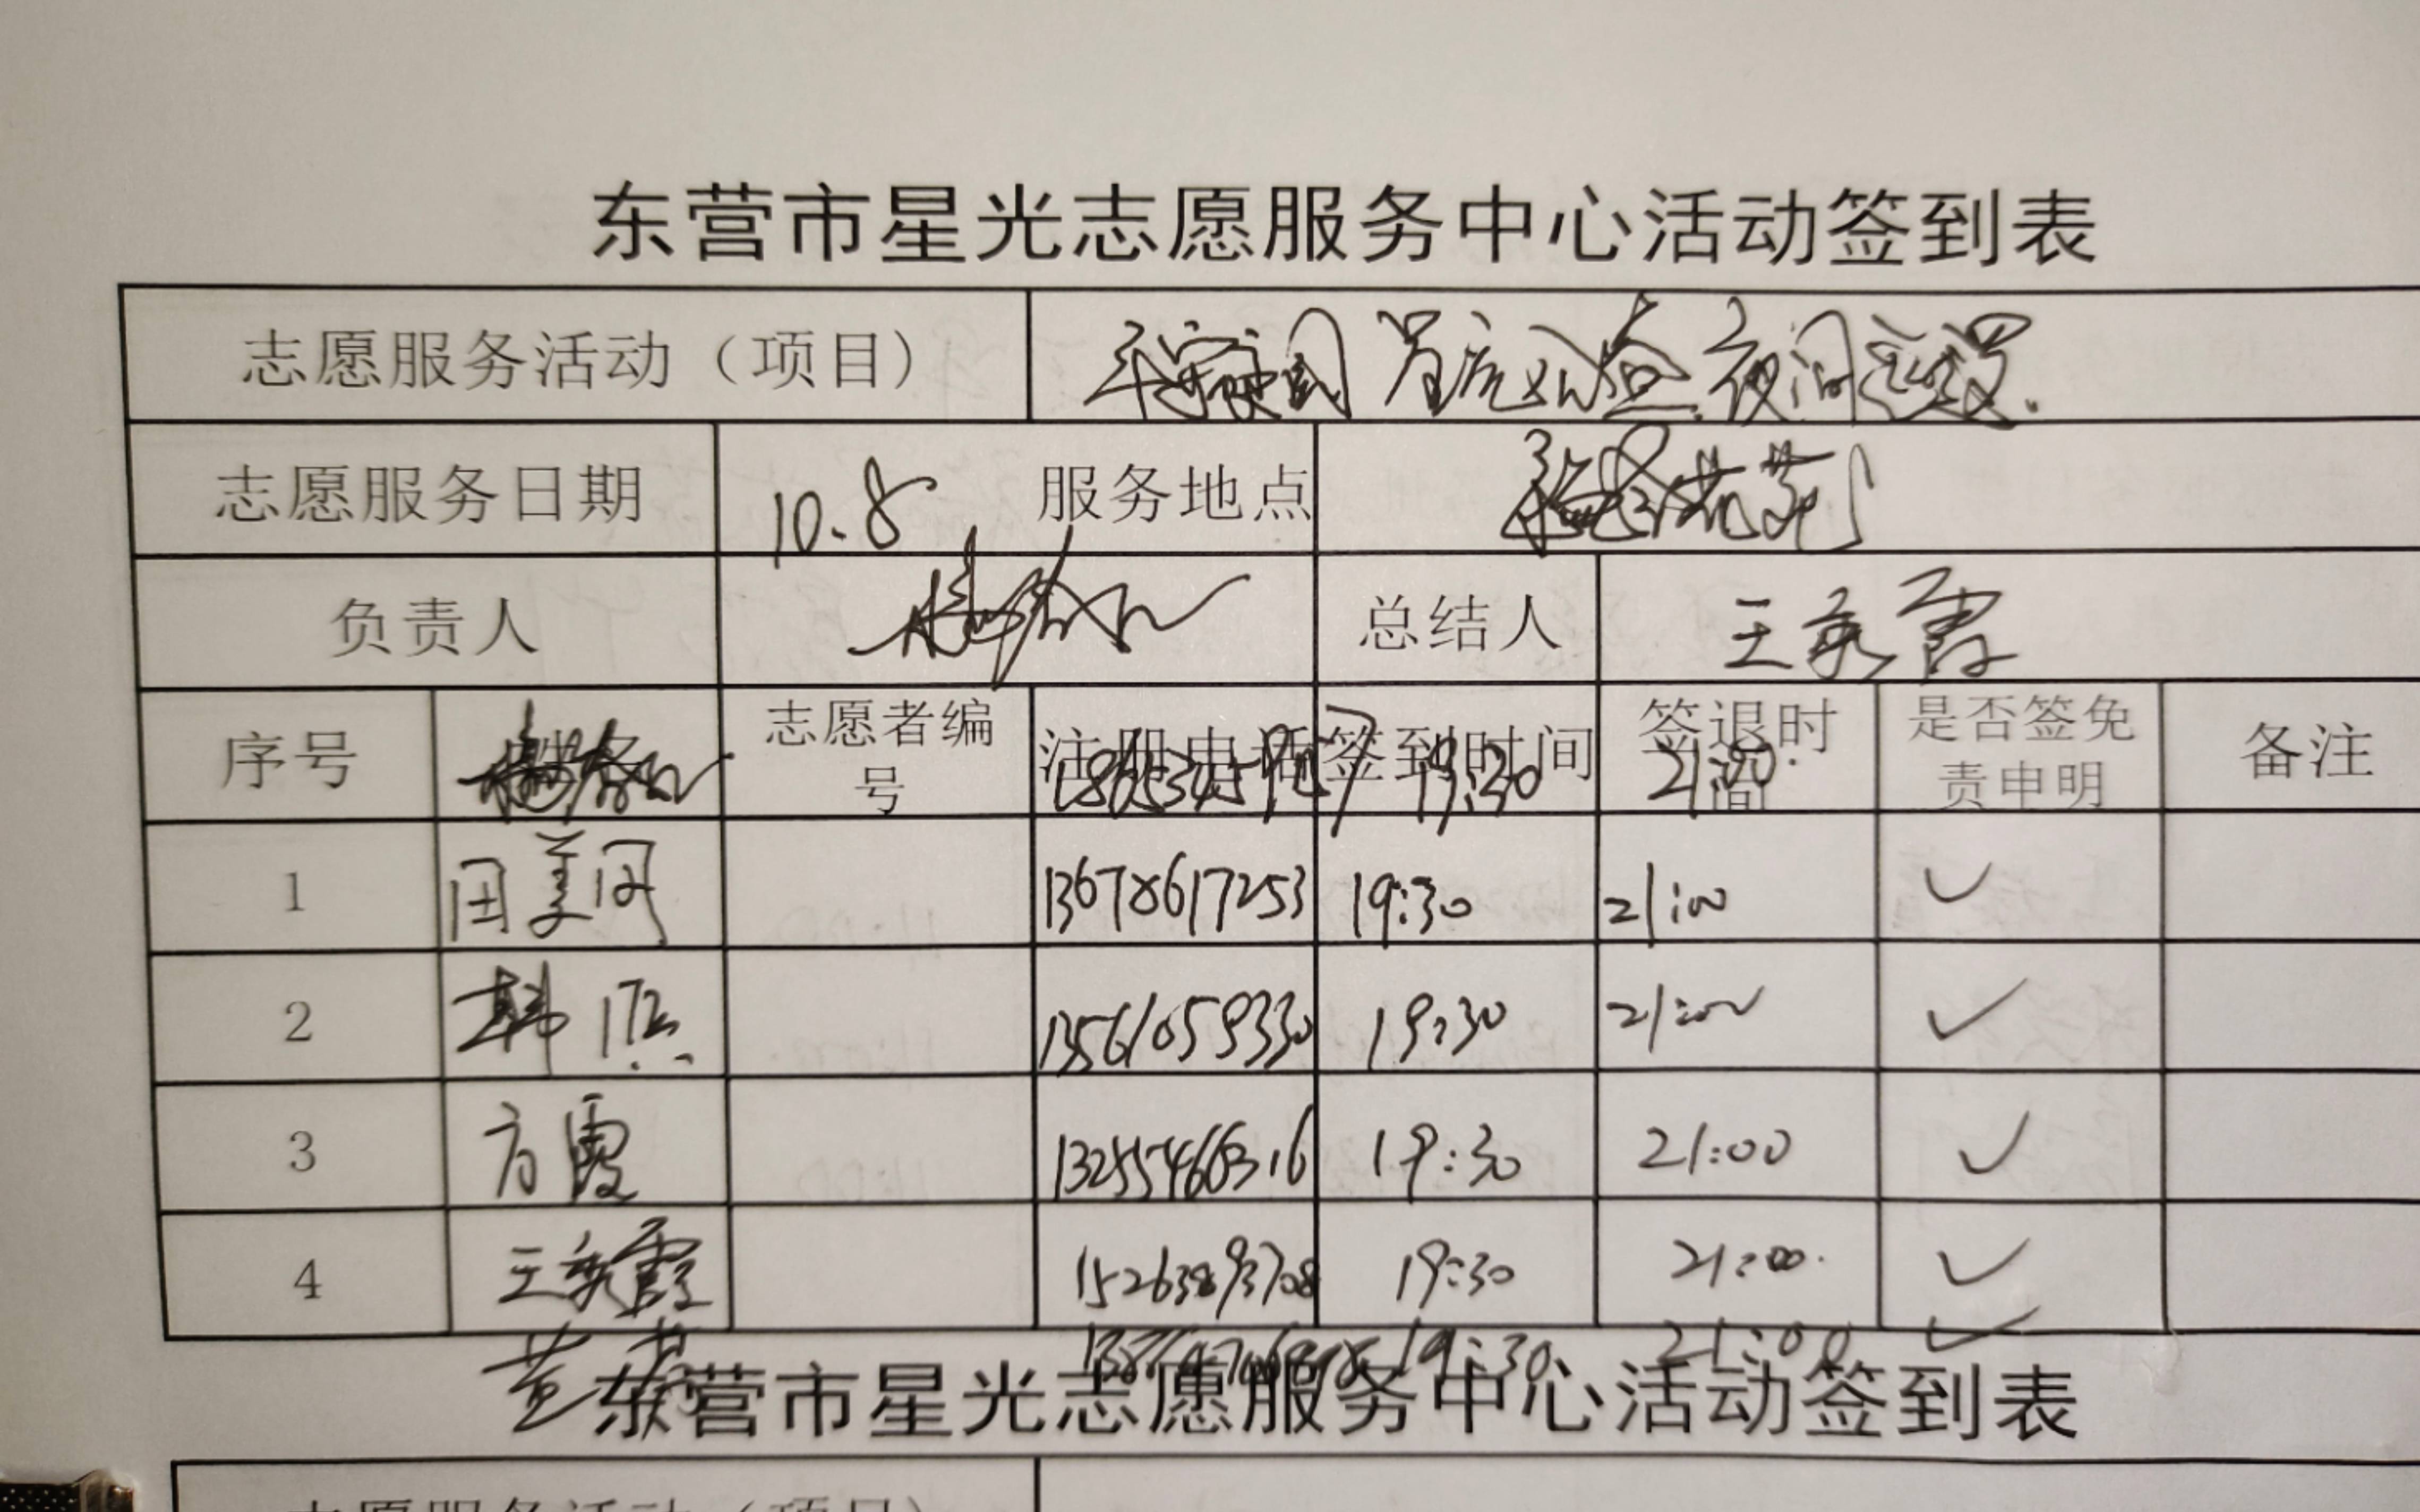 东营市星光志愿服务中心活动签到表
志愿服务活动（项目） 夜间
志愿服务日期 10.8 服务地点
负责人 总结人 王秀霞
序号 姓名 志愿者编号 注册电话 签到时间 签退时间 是否签免责申明 备注
19:30 21:00
1 田美 13678617253 19:30 21:00 ✓
2 韩 13561059330 19:30 21:00 ✓
3 方霞 13255466316 19:30 21:00 ✓
4 王秀霞 15263893708 19:30 21:00. ✓
黄 19:30 21:00 ✓
东营市星光志愿服务中心活动签到表
志愿服务活动（项目）